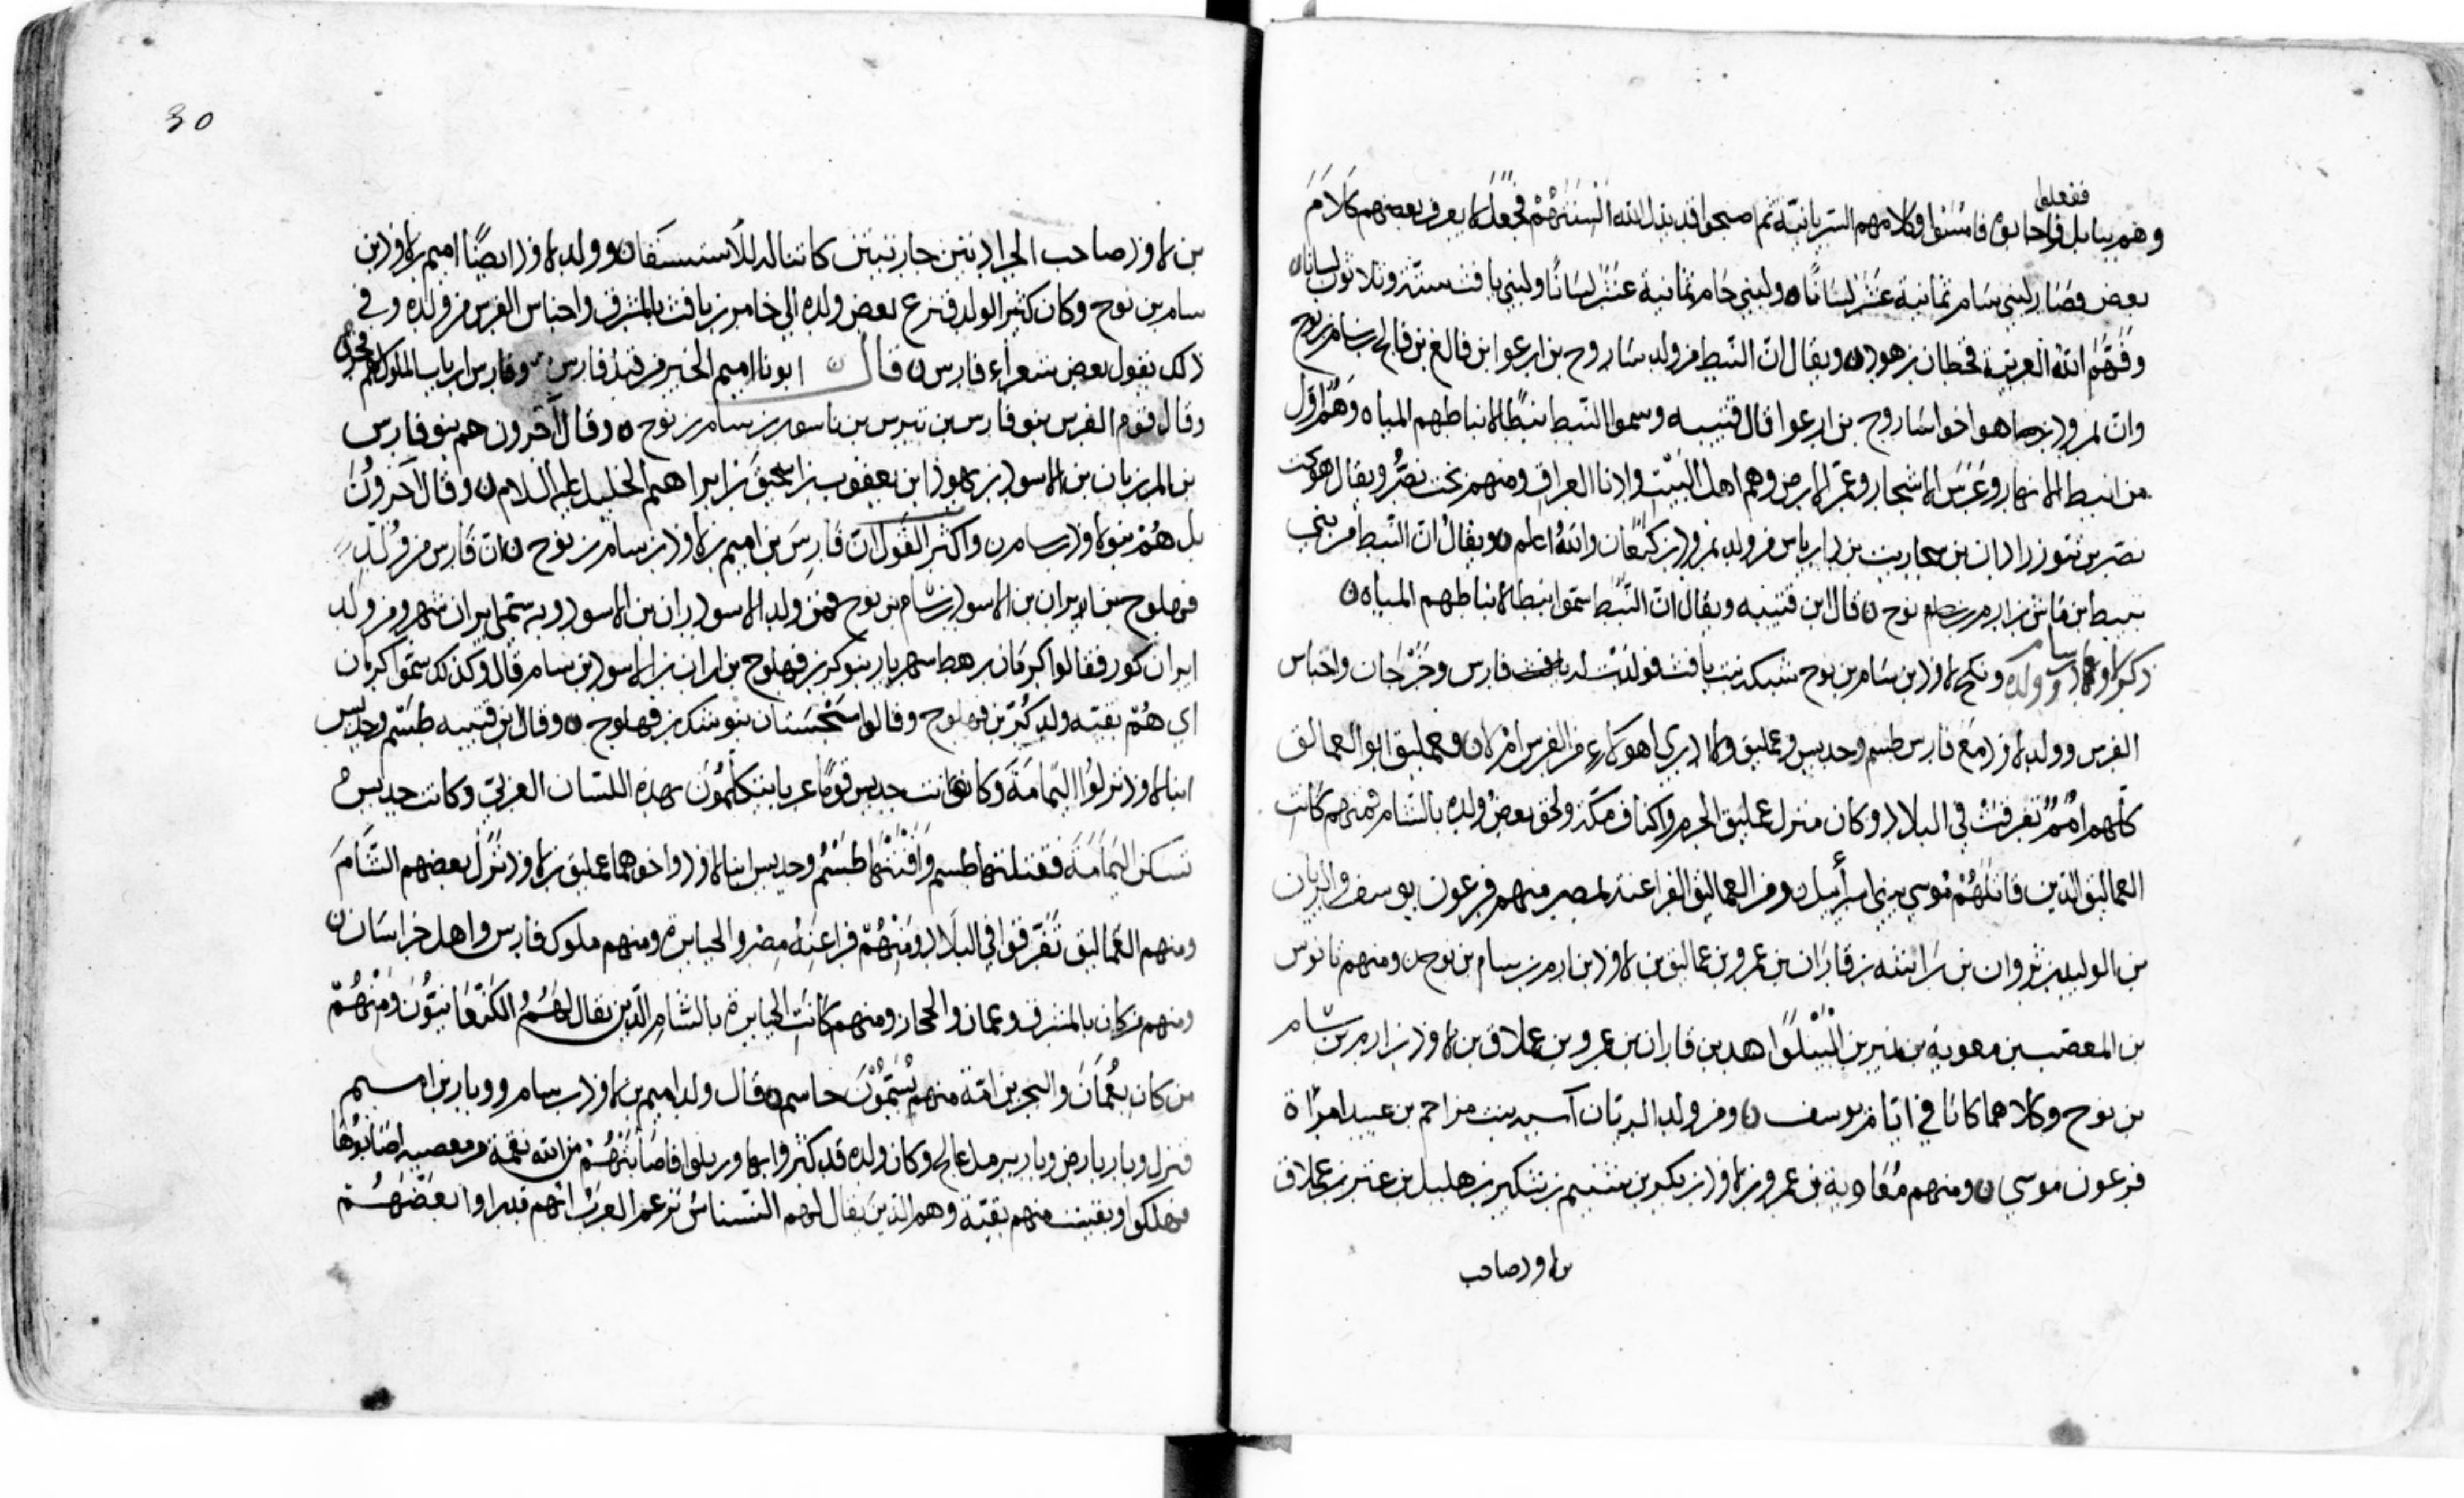 ففعلوا
وهم ببابل فاجابوه فامسوا وكلامهم السريانية ثم اصبحوا قد بدل الله السنتهم فجعل لا يعرف بعضهم كلام
بعض فصار لبني سام ثمانية عشر لسانا ولبني حام ثمانية عشر لسانا ولبني يافث ستة وثلاثون لسانا
وفهم الله العربية قحطان بن هود ويقال ان النبط من ولد ساروح بن ارعوا بن فالغ بن سام بن نوح
وان نمرود هو اخوا ساروح بن ارعوا قال قتيبه وسموا النبط نبطا لانباطهم المياه وهم اول
من انبط الانهار وغرس الاشجار وعمر الارض وهم اهل البيت واذنا العراق ومنهم بخت نصر ويقال هو بخت
نصر بن بن سحاريب بن دارياس من ولد نمرود بن كنعان والله اعلم ويقال ان النبط من بني
نبيط بن ماش بن ارم بن سام نوح قال ابن قتيبه ويقال ان النبط سموا نبطا لانباطهم المياه
ذكر لاوذ بن سام وولده ونكح لاوذ بن سام بن نوح شبكه بنت يافث فولدت له فارس وجرجان واجناس
الفرس وولد لاوذ مع فارس طسم وجديس وعمليق ولا ادري اهو لاء من الفرس ام لا وعمليق ابو العمالق
كلهم امم تفرقت في البلاد وكان منزل عمليق الحرم واكناف مكة ولحق بعض ولده بالشام فمنهم كانت
العماليق الذين قاتلهم موسى ببني اسرائيل ومن العماليق الفراعنة بمصر منهم فرعون يوسف والريان
بن الوليد بن ثروان بن راشه بن قاران بن عمرو بن عماليق بن لاوذ بن ارم بن سام بن نوح ومنهم قابوس
بن المعصب بن معوية بن نمير بن اهد بن قاران بن عمرو بن علاق بن لاوذ بن ارم بن سام
بن نوح وكلاهما كانا في ايام يوسف ومن ولد الريان آسيه بنت مزاحم بن عبيد امراة
فرعون موسى ومنهم معاوية بن عمرو بن لاوذ بن بكر بن بن هليل بن عتر بن عملاق
بن لاوذ صاحب
30
بن لاوذ صاحب الجرادتين جاريتين كانتا له للاستسقا وولد لاوذ ايضا اميم بن لاوذ بن
سام بن نوح وكان كثير الولد فنزع بعض ولده الى جامر بن يافث بالمشرق واجناس الفرس من ولده وفي
ذلك يقول بعض شعراء فارس قال ابونا اميم الخير من قبل فارس وفارس ارباب الملوك بهم فخري
وقال قوم الفرس بنو فارس بن تيرس بن ناسور بن سام بن نوح وقال آخرون هم بنو فارس
بن المرزبان بن الاسود بن يهوذا بن يعقوب بن اسحق بن ابراهيم الخليل عليه السلام وقال آخرون
بل هم بنو لاوذ بن سام واكثر القول ان فارس بن اميم بن لاوذ بن سام بن نوح ان فارس من ولد
فهلوج بن ايران بن الاسود بن سام بن نوح فمن ولد الاسود ايران بن الاسود وبه سمي ايران شهر ومن ولد
ايران كور فقالوا كرمان رهط شهريار بنو كرمن فهلوج بن ايران بن الاسود بن سام قال وكذلك سموا كرمان
اي هم بقيه ولد كرمن بن فهلوج وقالوا سجستان بنو شك بن فهلوج وقال ابن قتيبه طسم وجديس
ابنا لاوذ نزلوا اليمامة وكانوا وكانت جديس قوما عربا يتكلمون بهذه اللسان العربي وكانت جديس
تسكن اليمامة فقتلتها طسم وافنتها طسم وجديس ابنا لاوذ واخوهما عمليق بن لاوذ نزل بعضهم الشام
ومنهم العماليق تفرقوا في البلاد ومنهم فراعنه مصر والجبابرة ومنهم ملوك فارس واهل خراسان
ومنهم من كان بالمشرق وعمان والحجاز ومنهم كانت الجبابرة بالشام الذين يقال لهم الكنعانيون ومنهم
من كان بعمان والبحرين امة منهم يسمون جاسم قال ولد اميم بن لاوذ بن سام ووبار بن اميم
فنزل وبار بارض وبار برمل عالج وكان ولده قد كثروا بها وربلوا فاصابتهم من الله نقمة من معصيه اصابوها
فهلكوا وبقيت منهم بقية وهم الذين يقال لهم النسناس تزعم العرب انهم